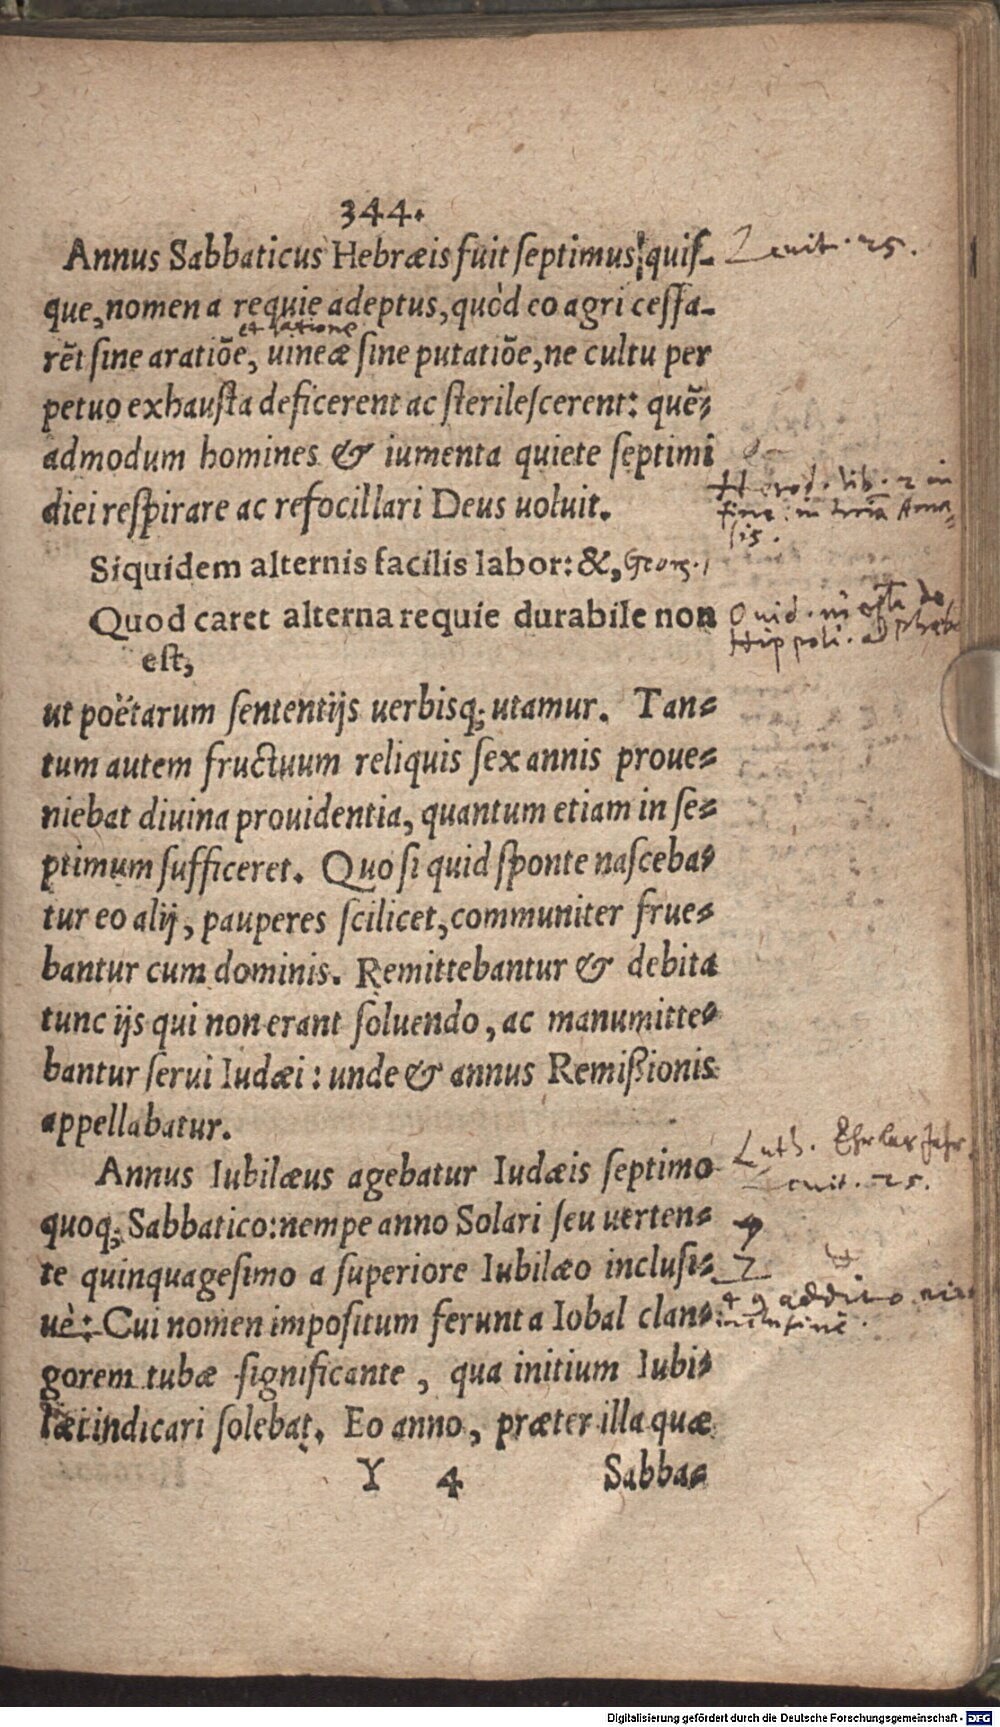 344.
Annus Sabbaticus Hebræis fuit septimus quis-
Leuit. 25.
que, nomen a requie adeptus, quòd eo agri cessa-
et ratione
rēt sine aratiōe, uineæ sine putatiōe, ne cultu per
petuo exhausta deficerent ac sterilescerent: quē-
admodum homines & iumenta quiete septimi
diei respirare ac refocillari Deus uoluit.
Herod. lib. 2 in
fine: in Ama-
sis.
Siquidem alternis facilis labor: &, Georg. 1
Quod caret alterna requie durabile non
est,
Ouid. in
Hippoli. ad
ut poëtarum sententijs uerbisq; utamur. Tan-
tum autem fructuum reliquis sex annis proue-
niebat diuina prouidentia, quantum etiam in se-
ptimum sufficeret. Quo si quid sponte nasceba-
tur eo alij, pauperes scilicet, communiter frue-
bantur cum dominis. Remittebantur & debita
tunc ijs qui non erant soluendo, ac manumitte-
bantur serui Iudæi: unde & annus Remißionis
appellabatur.
Annus Iubilæus agebatur Iudæis septimo
Luth. Jahr
Leuit. 25.
quoq; Sabbatico: nempe anno Solari seu uerten-
te quinquagesimo a superiore Iubilæo inclusi-
uè: Cui nomen impositum ferunt a Iobal clan-
addito
gorem tubæ significante, qua initium Iubi-
læi indicari solebat. Eo anno, præter illa quæ
Y 4 Sabba-
Digitalisierung gefördert durch die Deutsche Forschungsgemeinschaft - DFG